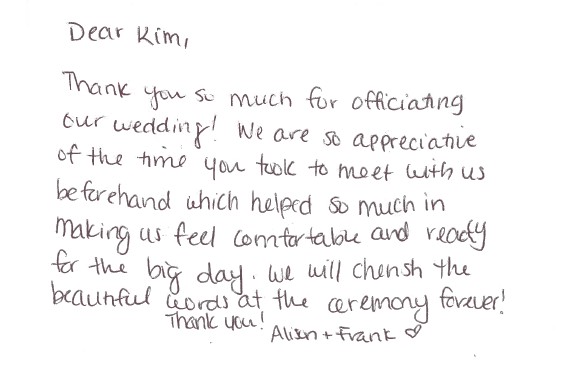 Dear Kim,
Thank you so much for officiating
our wedding! We are so appreciative
of the time you took to meet with us
beforehand which helped so much in
making us feel comfortable and ready
for the big day. We will cherish the
beautiful words at the ceremony forever!
Thank you!
Alison + Frank ♡